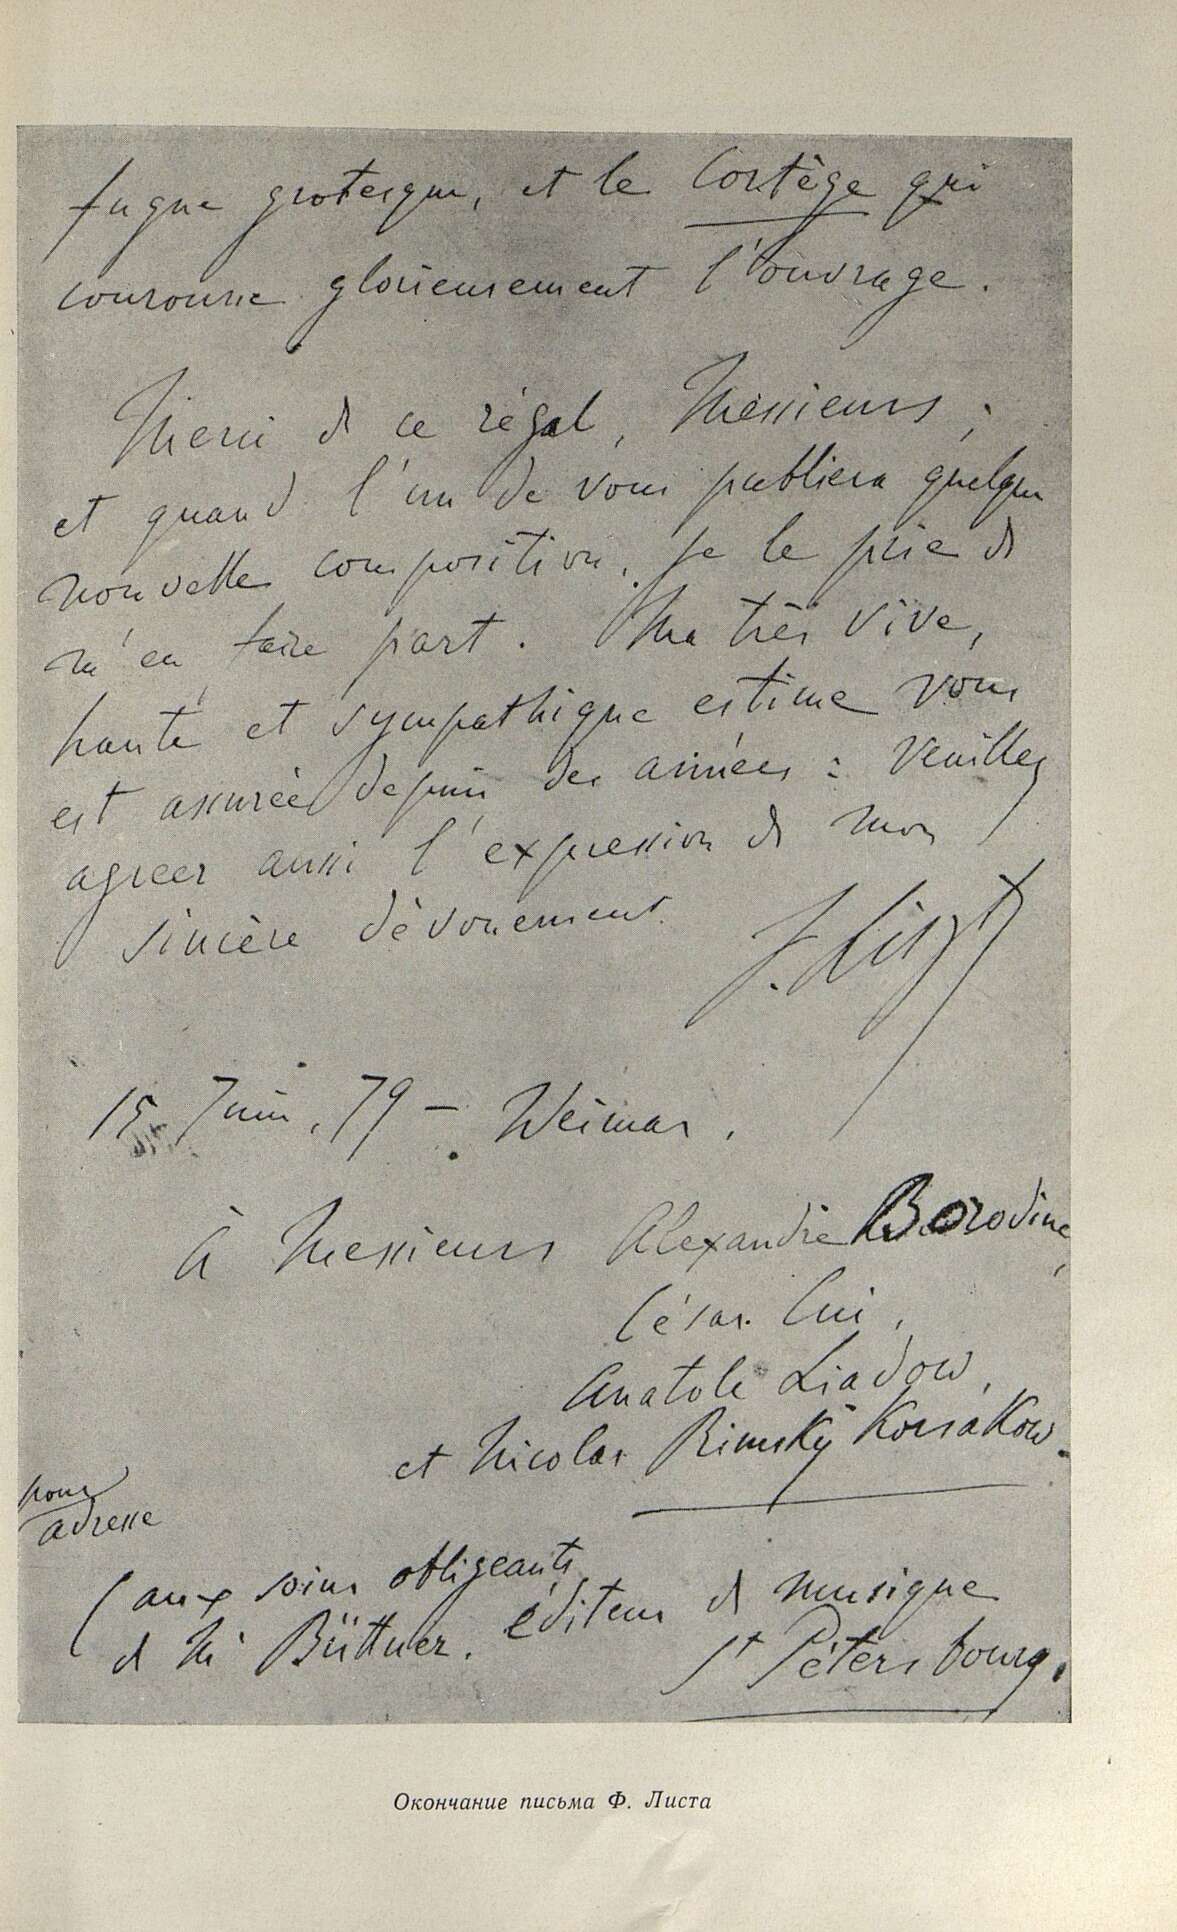 fugue grotesque, et le Cortège qui
couronne glorieusement l'ouvrage.
Merci de ce régal, Messieurs,
et quand l'un de vous publiera quelque
nouvelle composition, je le prie de
m'en faire part. Ma très vive,
haute et sympathique estime vous
est assurée depuis des années : Veuillez
agreer aussi l'expression de mon
sincère dévouement
F. Liszt
15 Juin, 79 – Weimar.
à Messieurs Alexandre Borodine,
César Cui,
Anatole Liadow,
et Nicolas Rimsky Korsakow.
pour
adresse
(aux soins obligeants
de Mr Büttner. éditeur de musique
St Pétersbourg.
Окончание письма Ф. Листа